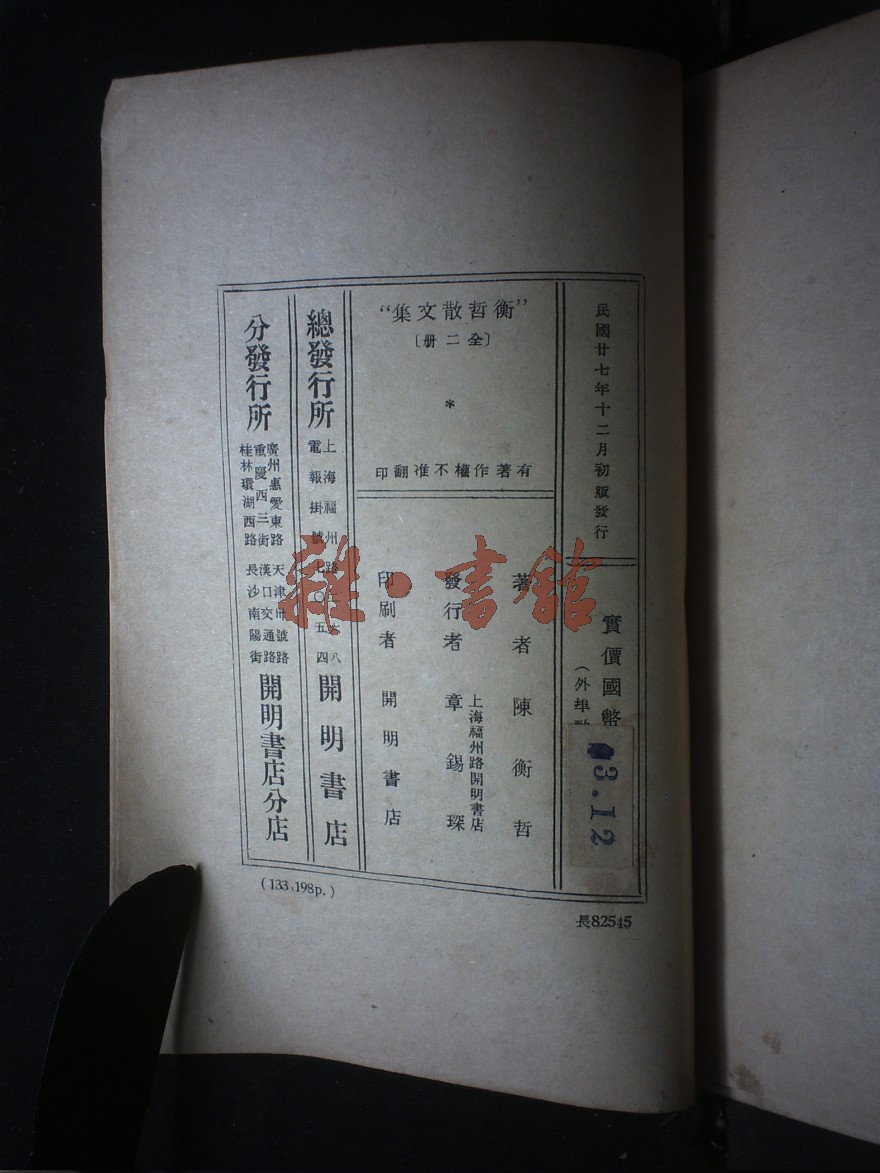 民國廿七年十二月初版發行
實價國幣
（外埠
3.12
“衡哲散文集”
〔全二册〕
*
有著作權不准翻印
著者 陳衡哲
發行者 章錫琛
上海福州路開明書店
印刷者 開明書店
總發行所
上海福州路
電報掛號七〇五四
開明書店
分發行所
廣州惠愛東路
重慶西三街
桂林環湖西路
天津廿號路
漢口交通路
長沙南陽街
開明書店分店
(133,198p.)
長82545
雜·書館